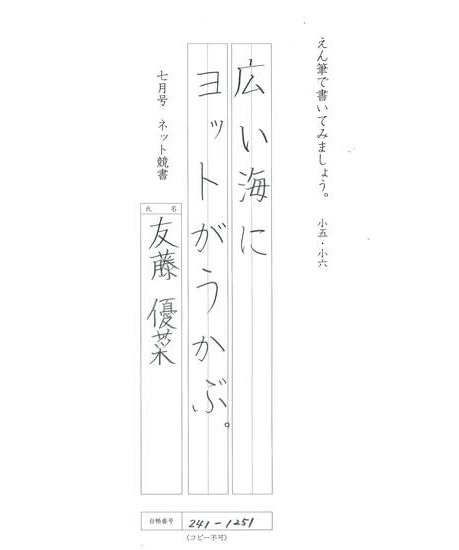 えん筆で書いてみましょう。 小五・小六
広い海に
ヨットがうかぶ。
七月号 ネット競書
氏名
友藤 優菜
台帳番号 241-1251
(コピー不可)